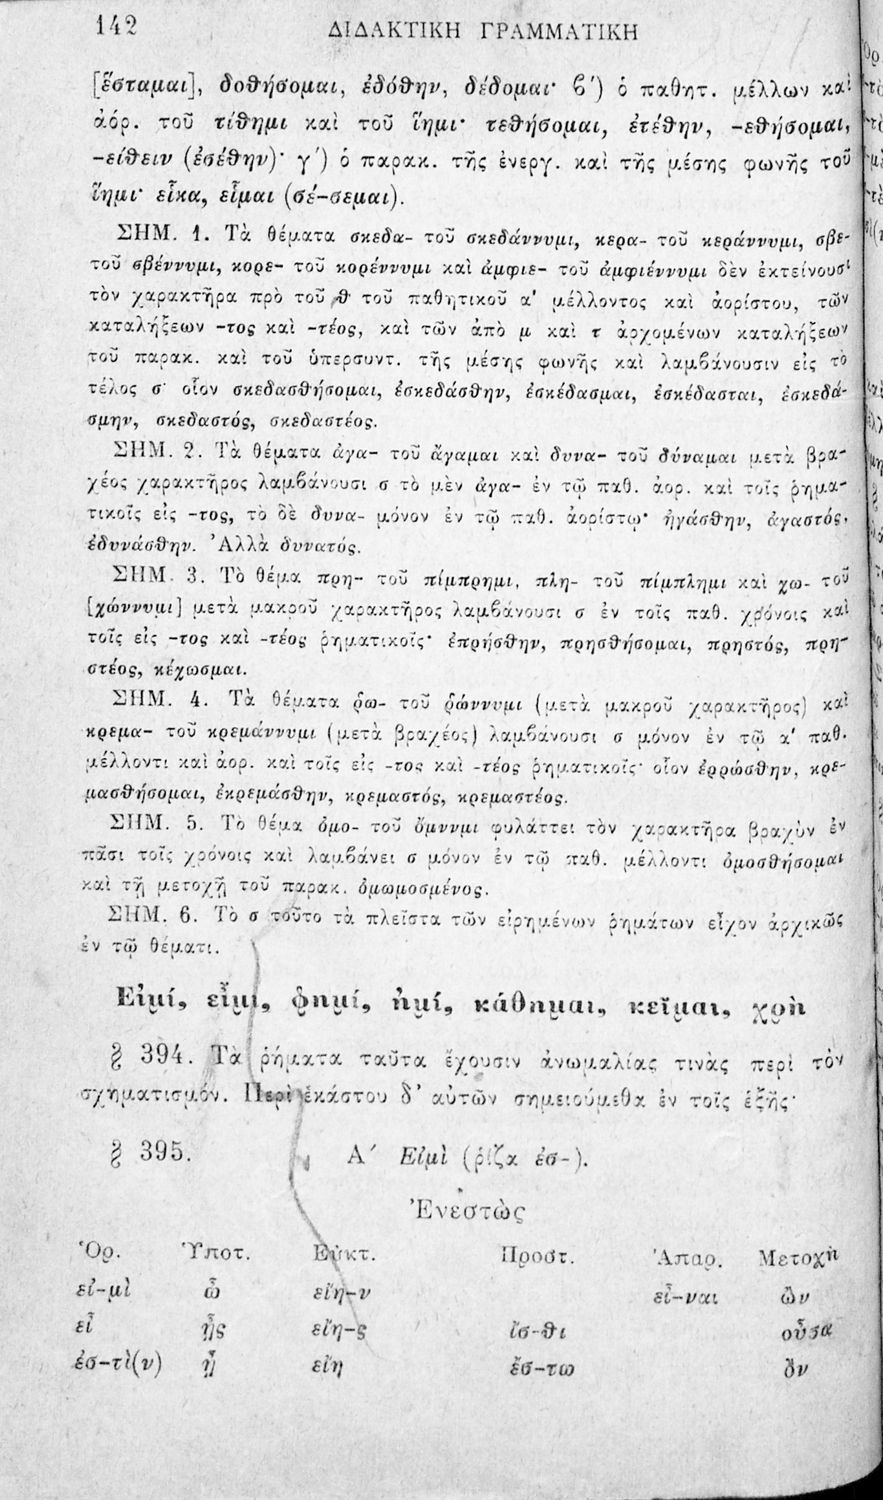 142 ΔΙΔΑΚΤΙΚΗ ΓΡΑΜΜΑΤΙΚΗ
[ἕσταμαι], δοθήσομαι, ἐδόθην, δέδομαι· β΄) ὁ παθητ. μέλλων καὶ
ἀόρ. τοῦ τίθημι καὶ τοῦ ἵημι· τεθήσομαι, ἐτέθην, -εθήσομαι,
-είθειν (ἐσέθην)· γ΄) ὁ παρακ. τῆς ἐνεργ. καὶ τῆς μέσης φωνῆς τοῦ
ἵημι· εἷκα, εἷμαι (σέ-σεμαι).
ΣΗΜ. 1. Τὰ θέματα σκεδα- τοῦ σκεδάννυμι, κερα- τοῦ κεράννυμι, σβε-
τοῦ σβέννυμι, κορε- τοῦ κορέννυμι καὶ ἀμφιε- τοῦ ἀμφιέννυμι δὲν ἐκτείνουσι
τὸν χαρακτῆρα πρὸ τοῦ θ τοῦ παθητικοῦ α' μέλλοντος καὶ ἀορίστου, τῶν
καταλήξεων -τος καὶ -τέος, καὶ τῶν ἀπὸ μ καὶ τ ἀρχομένων καταλήξεων
τοῦ παρακ. καὶ τοῦ ὑπερσυντ. τῆς μέσης φωνῆς καὶ λαμβάνουσιν εἰς τὸ
τέλος σ· οἷον σκεδασθήσομαι, ἐσκεδάσθην, ἐσκέδασμαι, ἐσκέδασται, ἐσκεδά-
σμην, σκεδαστός, σκεδαστέος.
ΣΗΜ. 2. Τὰ θέματα ἀγα- τοῦ ἄγαμαι καὶ δυνα- τοῦ δύναμαι μετὰ βρα-
χέος χαρακτῆρος λαμβάνουσι σ τὸ μὲν ἀγα- ἐν τῷ παθ. ἀορ. καὶ τοῖς ῥημα-
τικοῖς εἰς -τος, τὸ δὲ δυνα- μόνον ἐν τῷ παθ. ἀορίστῳ· ἠγάσθην, ἀγαστός,
ἐδυνάσθην. Ἀλλὰ δυνατός.
ΣΗΜ. 3. Τὸ θέμα πρη- τοῦ πίμπρημι, πλη- τοῦ πίμπλημι καὶ χω- τοῦ
[χώννυμι] μετὰ μακροῦ χαρακτῆρος λαμβάνουσι σ ἐν τοῖς παθ. χρόνοις καὶ
τοῖς εἰς -τος καὶ -τέος ῥηματικοῖς· ἐπρήσθην, πρησθήσομαι, πρηστός, πρη-
στέος, κέχωσμαι.
ΣΗΜ. 4. Τὰ θέματα ῥω- τοῦ ῥώννυμι (μετὰ μακροῦ χαρακτῆρος) καὶ
κρεμα- τοῦ κρεμάννυμι (μετὰ βραχέος) λαμβάνουσι σ μόνον ἐν τῷ α' παθ.
μέλλοντι καὶ ἀορ. καὶ τοῖς εἰς -τος καὶ -τέος ῥηματικοῖς· οἷον ἐρρώσθην, κρε-
μασθήσομαι, ἐκρεμάσθην, κρεμαστός, κρεμαστέος.
ΣΗΜ. 5. Τὸ θέμα ὀμο- τοῦ ὄμνυμι φυλάττει τὸν χαρακτῆρα βραχὺν ἐν
πᾶσι τοῖς χρόνοις καὶ λαμβάνει σ μόνον ἐν τῷ παθ. μέλλοντι ὀμοσθήσομαι
καὶ τῇ μετοχῇ τοῦ παρακ. ὀμωμοσμένος.
ΣΗΜ. 6. Τὸ σ τοῦτο τὰ πλεῖστα τῶν εἰρημένων ῥημάτων εἶχον ἀρχικῶς
ἐν τῷ θέματι.
Εἰμί, εἶμι, φημί, ἠμί, κάθημαι, κεῖμαι, χρὴ
§ 394. Τὰ ῥήματα ταῦτα ἔχουσιν ἀνωμαλίας τινὰς περὶ τὸν
σχηματισμόν. Περὶ ἑκάστου δ' αὐτῶν σημειούμεθα ἐν τοῖς ἑξῆς·
§ 395. Α΄ Εἰμὶ (ῥίζα ἐσ-).
Ἐνεστὼς
Ὁρ. Ὑποτ. Εὐκτ. Προστ. Ἀπαρ. Μετοχὴ
εἰ-μὶ ὦ εἴη-ν εἶ-ναι ὢν
εἶ ᾖς εἴη-ς ἴσ-θι οὖσα
ἐσ-τὶ(ν) ᾖ εἴη ἔσ-τω ὂν